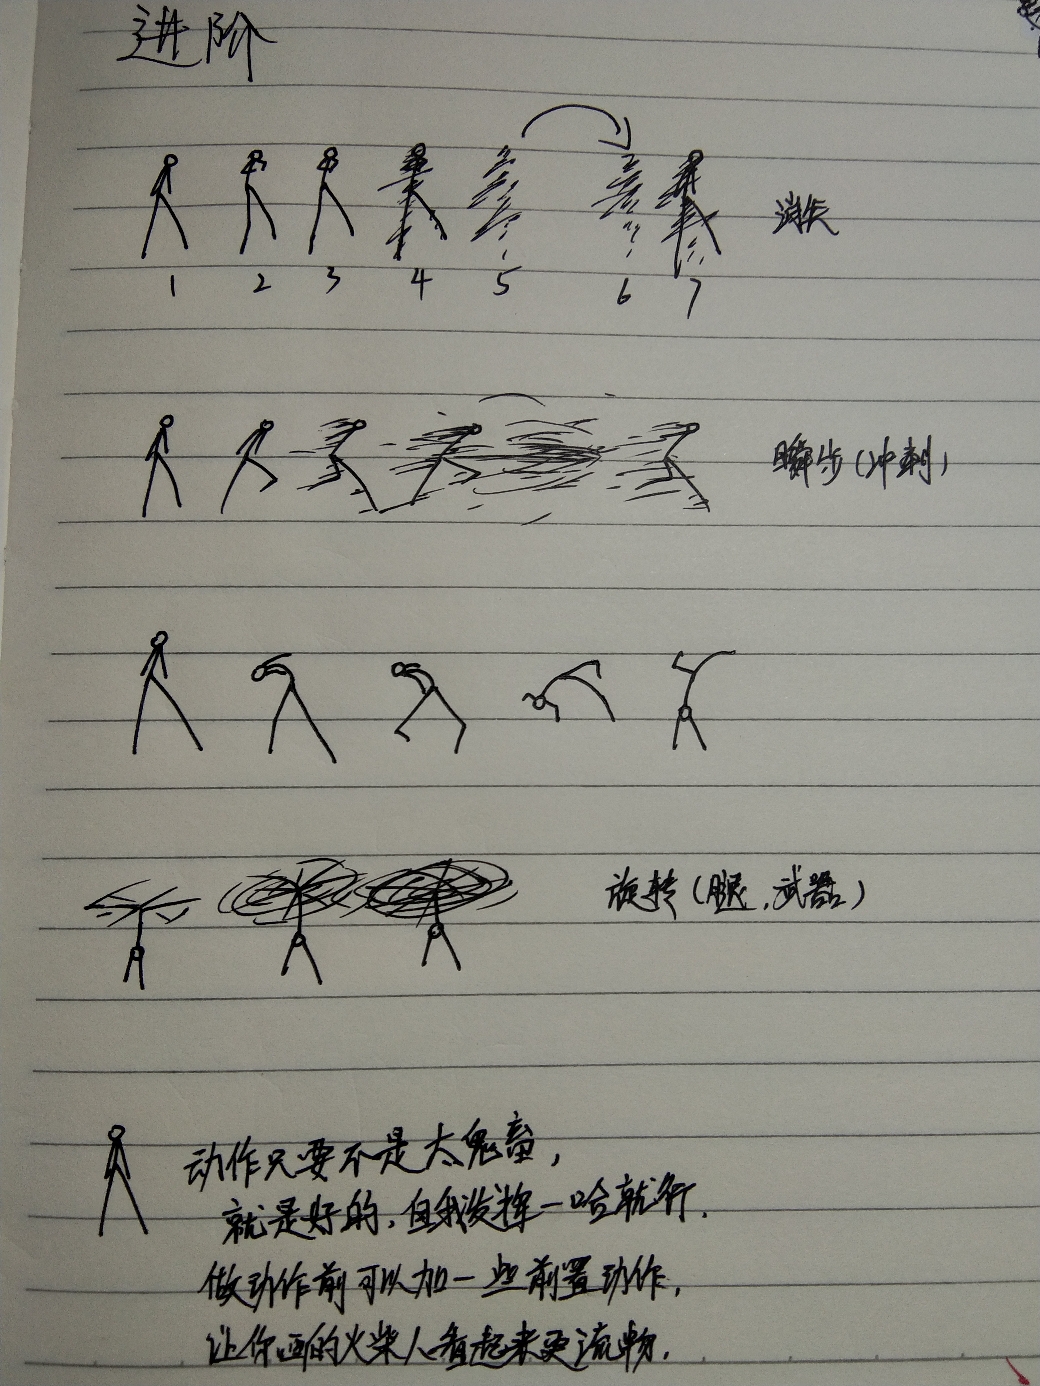 进阶
消失
1 2 3 4 5 6 7
瞬步(冲刺)
旋转(腿,武器)
动作只要不是太鬼畜,
就是好的,自我发挥一哈就行.
做动作前可以加一些前置动作,
让你画的火柴人看起来更流畅.